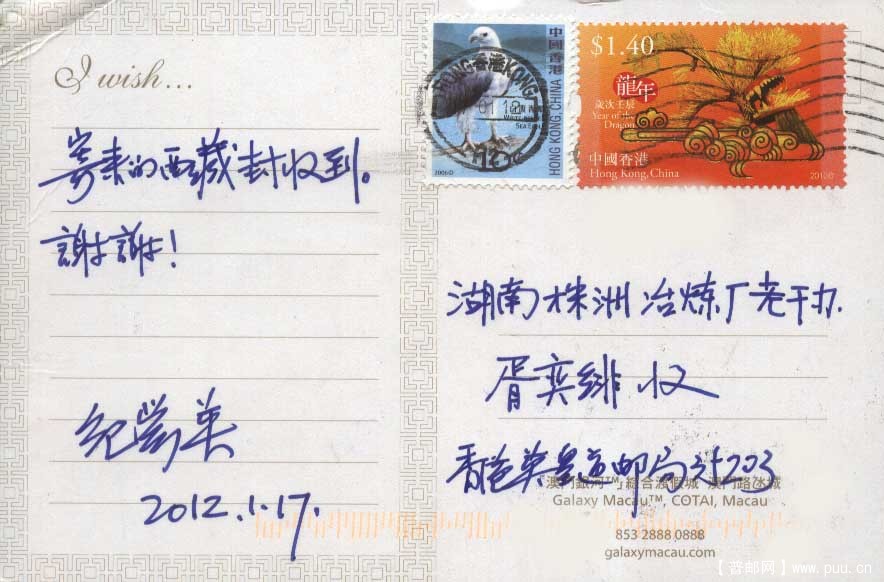 I wish...
寄来的西藏封收到。
謝謝!
2012.1.17.
中國香港
HONG KONG, CHINA
2006
HONG KONG
$1.40
龍年
歲次壬辰
Year of the
Dragon
中國香港
Hong Kong, China
湖南株洲冶炼厂老干办.
胥奕绯 收
香港英皇道邮局
澳門銀河™,綜合渡假城 澳門路氹城
Galaxy Macau™, COTAI, Macau
853 2888 0888
galaxymacau.com
【普邮网】www.puu.cn